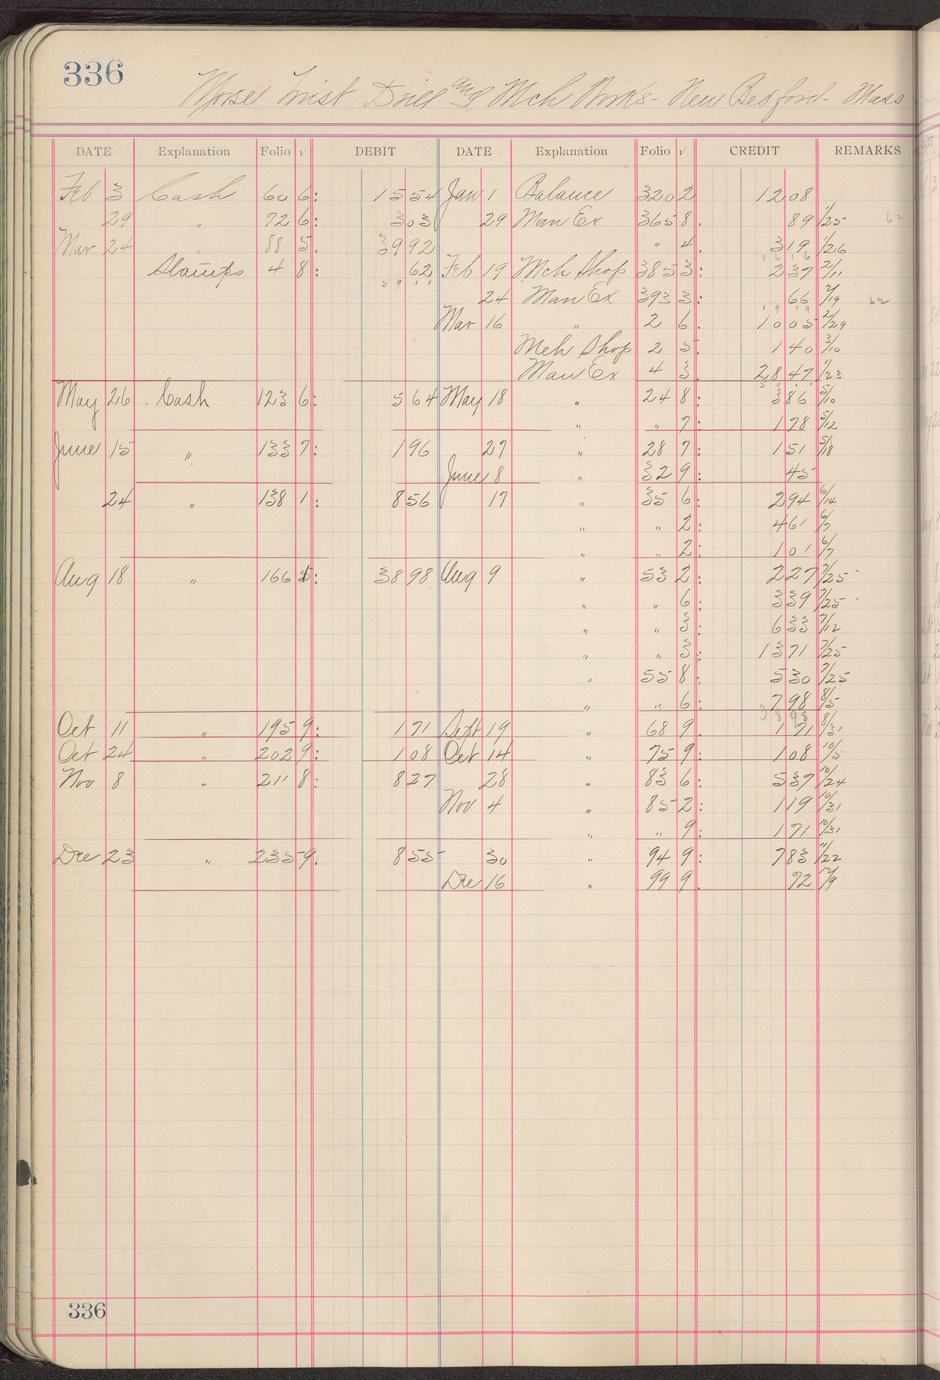 336
Morse Twist Drill and Mch Works - New Bedford - Mass
DATE Explanation Folio √ DEBIT DATE Explanation Folio √ CREDIT REMARKS
Feb 3 Cash 60 6: 15 54 Jany 1 Balance 320 2 12 08
29 " 72 6: 3 03 29 Man Ex 365 8. 89 1/25
Mar 24 88 5. 39 92 " 4. 3 19 1/26
Stamps 4 8: 62 Feb 19 Mch Shop 385 3: 2 37 2/11
24 Man Ex 393 3: 66 2/19
Mar 16 " 2 6. 10 05 2/29
Mch Shop 2 5. 1 40 3/10
Man Ex 4 3. 28 47
May 26 Cash 123 6: 5 64 May 18 " 24 8: 3 86 5/10
" " 7: 1 78 5/12
June 15 " 133 7: 1 96 27 " 28 7: 1 51 5/18
June 8 " 32 9: 45
24 " 138 1: 8 56 17 " 35 6: 2 94 6/14
" " 2: 4 61 6/7
" " 2: 1 01 6/7
Aug 18 " 166 5: 38 98 Aug 9 " 53 2: 2 27 7/25
" " 6: 3 39 7/25
" " 3: 6 33 7/12
" " 3: 13 71 7/25
" 55 8: 5 30 7/25
" " 6: 7 98 8/5
38 98
Oct 11 " 195 9: 1 71 Sept 19 " 68 9. 1 71 8/31
Oct 24 " 202 9: 1 08 Oct 14 " 75 9: 1 08 10/5
Nov 8 " 211 8: 8 27 28 " 83 6: 5 37 10/24
Nov 4 " 85 2: 1 19 10/31
" " 9: 1 71 10/31
Dec 23 " 235 9. 8 55 30 " 94 9: 7 83 11/22
Dec 16 " 99 9. 72 12/9
336